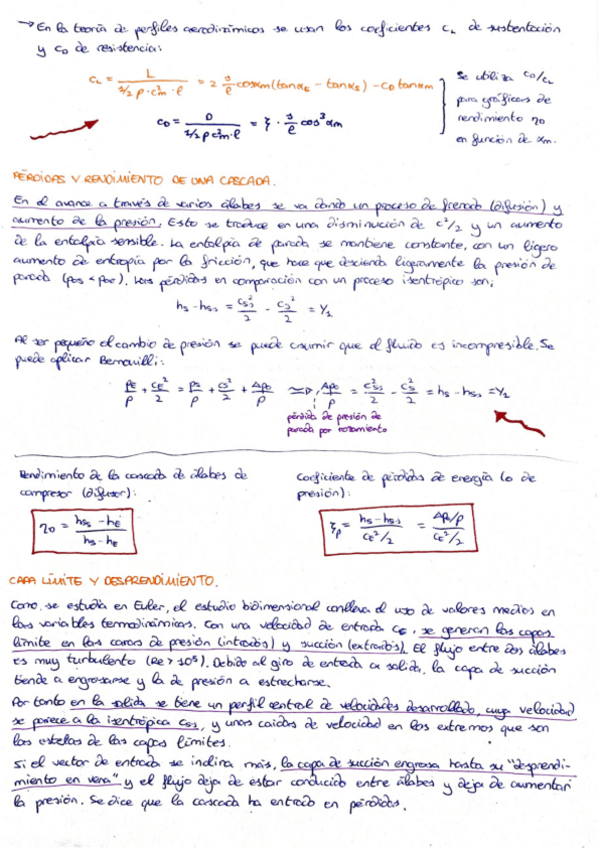 → En la teoría de perfiles aerodinámicos se usan los coeficientes CL de sustentación
y CD de resistencia:
CL = L / (1/2 ρ · c²m · l) = 2 s/l cosαm (tanαE − tanαs) − CD tanαm
CD = D / (1/2 ρ c²m · l) = ξ · s/l cos³αm
Se utiliza CD/CL
para gráficas de
rendimiento ηD
en función de αm.
PÉRDIDAS Y RENDIMIENTO DE UNA CASCADA.
En el avance a través de varios álabes se va dando un proceso de frenado (difusión) y
aumento de la presión. Esto se traduce en una disminución de c²/2 y un aumento
de la entalpía sensible. La entalpía de parada se mantiene constante, con un ligero
aumento de entropía por la fricción, que hace que descienda ligeramente la presión de
parada (p0s < p0E). Las pérdidas en comparación con un proceso isentrópico son:
hs − hss = css²/2 − cs²/2 = Y1
Al ser pequeño el cambio de presión se puede asumir que el fluido es incompresible. Se
puede aplicar Bernouilli:
pE/ρ + cE²/2 = ps/ρ + cs²/2 + Δp0/ρ ⇒ Δp0/ρ = c²ss/2 − c²s/2 = hs − hss = Y1
pérdida de presión de
parada por rozamiento
Rendimiento de la cascada de álabes de
compresor (difusor):
ηD = (hss − hE) / (hs − hE)
Coeficiente de pérdidas de energía (o de
presión):
ξp = (hs − hss) / (cE²/2) = (ΔP0/ρ) / (cE²/2)
CAPA LÍMITE Y DESPRENDIMIENTO.
Como se estudia en Euler, el estudio bidimensional conlleva el uso de valores medios en
las variables termodinámicas. Con una velocidad de entrada cE, se generan las capas
límite en las caras de presión (intradós) y succión (extradós). El flujo entre dos álabes
es muy turbulento (Re > 10⁵). Debido al giro de entrada a salida, la capa de succión
tiende a engrosarse y la de presión a estrecharse.
Por tanto en la salida se tiene un perfil central de velocidades desarrollado, cuya velocidad
se parece a la isentrópica css, y unas caídas de velocidad en los extremos que son
las estelas de las capas límites.
Si el vector de entrada se inclina más, la capa de succión engrosa hasta su "desprendi-
miento en vena" y el flujo deja de estar conducido entre álabes y deja de aumentar
la presión. Se dice que la cascada ha entrado en pérdidas.